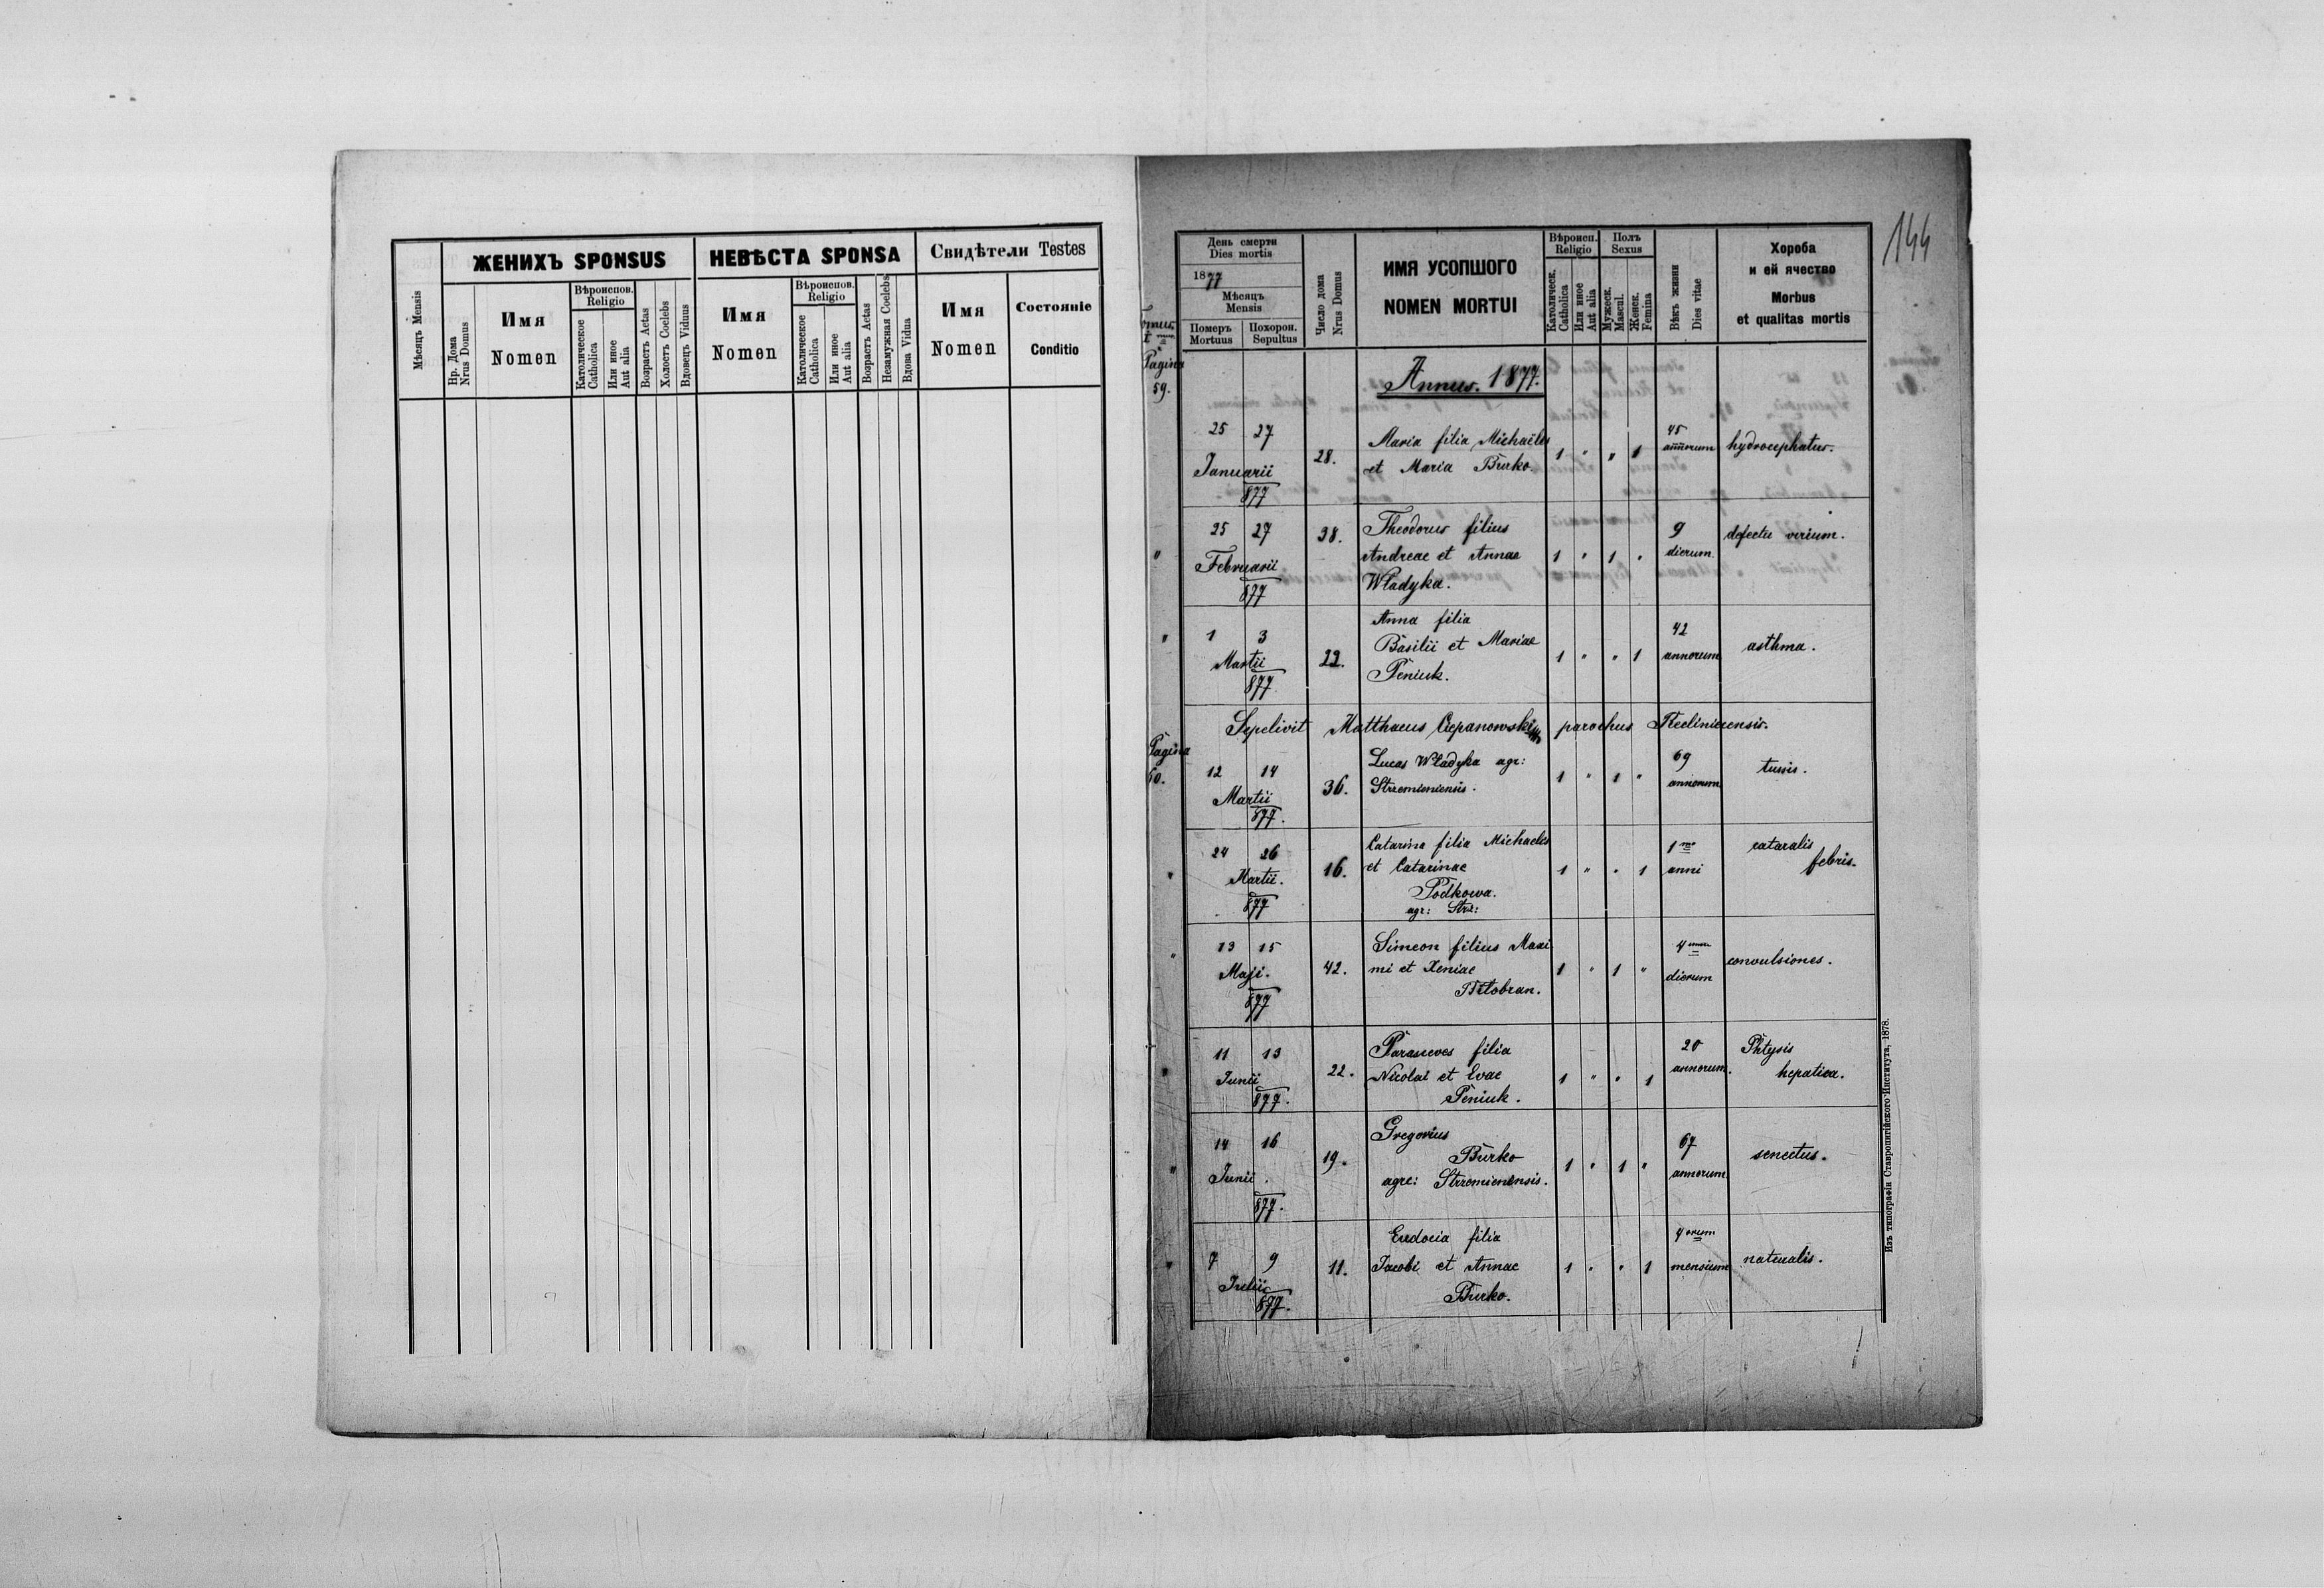 ЖЕНИХЪ SPONSUS
НЕВѢСТА SPONSA
Свидѣтели Testes
Мѣсяцъ Mensis
Нр. Дома
Nrus Domus
Имя
Nomen
Вѣроиспов.
Religio
Католическое
Catholica
Или иное
Aut alia
Возрастъ Aetas
Холостъ Coelebs
Вдовецъ Viduus
Имя
Nomen
Вѣроиспов.
Religio
Католическое
Catholica
Или иное
Aut alia
Возрастъ Aetas
Незамужная Coelebs
Вдова Vidua
Имя
Nomen
Состояніе
Conditio
144
День смерти
Dies mortis
1877
Мѣсяцъ
Mensis
Померъ
Mortuus
Похорон.
Sepultus
Число дома
Nrus Domus
ИМЯ УСОПШОГО
NOMEN MORTUI
Вѣроисп.
Religio
Католическ.
Catholica
Или иное
Aut alia
Полъ
Sexus
Мужеск.
Mascul.
Женск.
Femina
Вѣкъ жизни
Dies vitae
Хороба
и ей ячество
Morbus
et qualitas mortis
Pagina
59.
Annus. 1877.
25 27
Januarii
877
28.
Maria filia Michaëlis
et Maria Burko.
1 " " 1
45
annorum
hydrocephatus.
"
25 27
Februarii
877
38.
Theodorus filius
Andreae et Annae
Władyka.
1 " 1 "
9
dierum
defectu virium.
"
1 3
Martii
877
22.
Anna filia
Basilii et Mariae
Peniuk.
1 " " 1
42
annorum
asthma.
Sepelivit Matthaeus Ciepanowski parochus
Pagina
60.
12 14
Martii
877.
36.
Lucas Władyka agr:
Strzemieniensis.
1 " 1 "
69
annorum
tussis.
"
24 26
Martii.
877
16.
Catarina filia Michaelis
et Catarinae
Podkowa.
agr: Strz:
1 " " 1
1
anni
cataralis
febris.
"
13 15
Maji.
877
42.
Simeon filius Maxi
mi et Xeniae
1 " 1 "
4
dierum
convulsiones.
"
11 13
Junii
877.
22.
Parasceves filia
Nicolai et Evae
Peniuk.
1 " " 1
20
annorum.
Phtysis
hepatica.
"
14 16
Junii.
877.
19.
Gregorius
Burko
agr: Strzemienensis.
1 " 1 "
67
annorum
senectus.
"
7 9
Julii
877.
11.
Eudocia filia
Jacobi et Annae
Burko.
1 " " 1
4 orum
mensium
naturalis.
Изъ типографіи Ставропигійского Института, 1878.